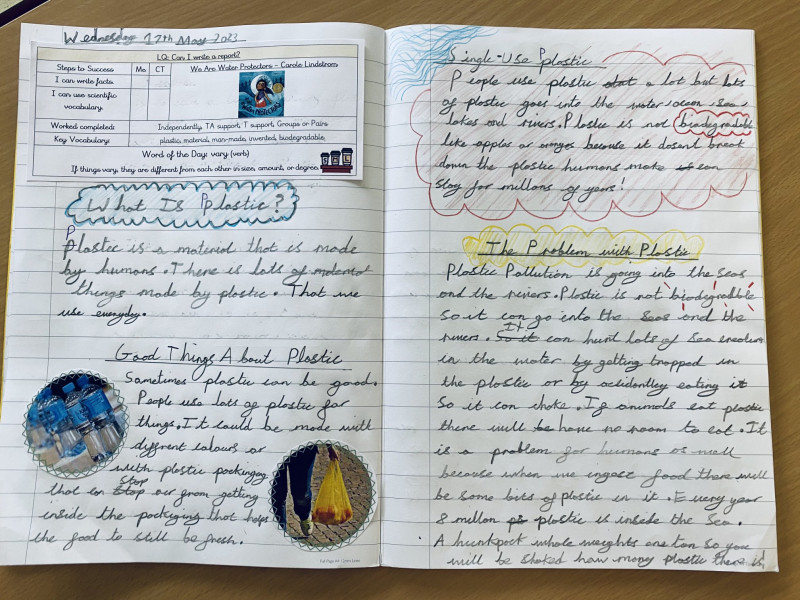 Wednesday 17th May 2023
LQ: Can I write a report?
Steps to Success Me CT We Are Water Protectors - Carole Lindstrom
I can write facts.
I can use scientific
vocabulary.
Worked completed: Independently, TA support, T support, Groups or Pairs
Key Vocabulary: plastic, material, man-made, invented, biodegradable,
Word of the Day: vary (verb)
If things vary, they are different from each other in size, amount, or degree.
What Is Plastic?
P
Plastic is a material that is made
by humans. There is lots of
things made by plastic. That we
use everyday.
Good Things About Plastic
Sometimes plastic can be good.
People use lots of plastic for
things. It could be made with
diffrent colours or
with plastic packinging
stop
that can stop our from getting
inside the packaging that helps
the food to still be fresh.
Single-Use Plastic
People use plastic a lot but lots
of plastic goes into the water, ocean, sea,
lakes and rivers. Plastic is not biodegradable
like apples or oranges because it dosen't break
down the plastic humans make can
stay for millons of years!
The Problem with Plastic
Plastic Pollution is going into the seas
and the rivers. Plastic is not biodegradble
so it can go into the seas and the
rivers. So it It can hunt lots of sea creature
in the water by getting trapped in
the plastic or by acidantley eating it
So it can choke. If animals eat plastic
there will be have no room to eat. It
is a problem for humans as well
because when we ingest food there will
be some bits of plastic in it. Every year
8 millon plastic is inside the sea.
A hunkpock whale weights one tan so you
will be shoked how many plastic there is